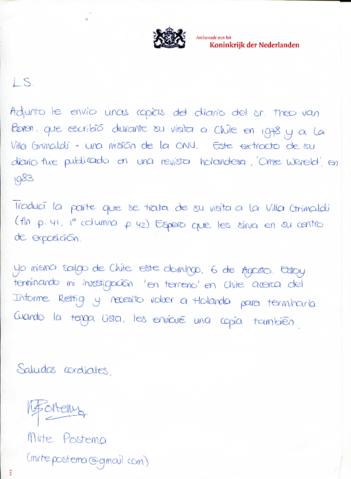 Ambassade van het
Koninkrijk der Nederlanden
L.S.
Adjunto le envio unas copias del diario del sr. Theo van
Boven que escribió durante su visita a Chile en 1978 y a la
Villa Grimaldi - una misión de la ONU. Este extracto de su
diario fue publicado en una revista holandesa, 'Onze Wereld', en
1983.
Traduci la parte que se trata de su visita a la Villa Grimaldi
(fin p. 41, 1ª columna p 42) Espero que les sirva en su centro
de exposición.
Yo misma salgo de Chile este domingo, 6 de Agosto. Estoy
terminando mi investigación 'en terreno' en Chile acerca del
Informe Rettig y necesito volver a Holanda para terminarla.
Cuando la tenga lista, les enviaré una copia también.
Saludos cordiales,
Mirte Postema
(mirtepostema@gmail.com)